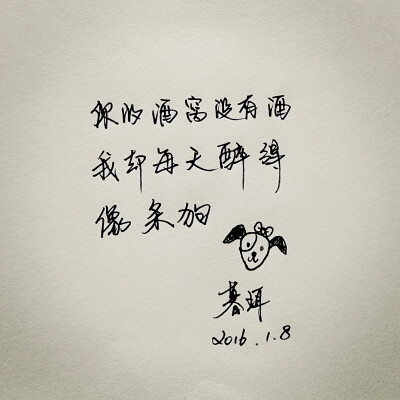 你的酒窝没有酒
我却每天醉得
像条狗
暮珥
2016.1.8